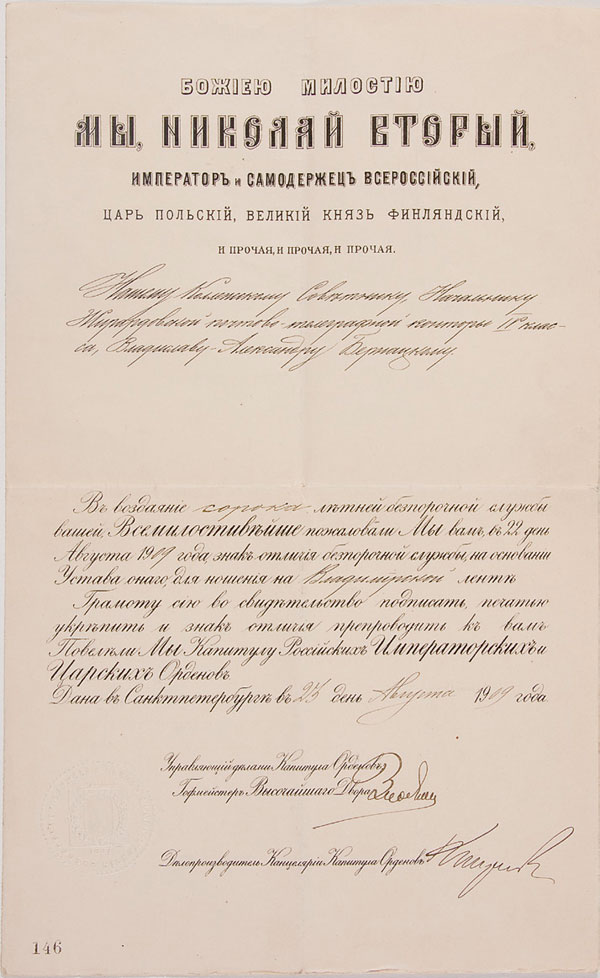 БОЖІЕЮ МИЛОСТІЮ
МЫ, НИКОЛАЙ ВТОРЫЙ,
ИМПЕРАТОРЪ и САМОДЕРЖЕЦЪ ВСЕРОССІЙСКІЙ,
ЦАРЬ ПОЛЬСКІЙ, ВЕЛИКІЙ КНЯЗЬ ФИНЛЯНДСКІЙ,
И ПРОЧАЯ, И ПРОЧАЯ, И ПРОЧАЯ.
Нашему Коллежскому Совѣтнику, Начальнику
Жирардовской почтово-телеграфной конторы IV клас-
са, Владиславу-Александру Бернацкому.
Въ воздаяніе сорока лѣтней безпорочной службы
вашей, Всемилостивѣйше пожаловали Мы вамъ, въ 22 день
Августа 1909 года, знакъ отличія безпорочной службы, на основаніи
Устава онаго, для ношенія на Владимірской лентѣ
Грамоту сію во свидѣтельство подписать, печатью
укрѣпить и знакъ отличія препроводить къ вамъ
Повелѣли Мы Капитулу Россійскихъ Императорскихъ и
Царскихъ Орденовъ
Дана въ Санктпетербургѣ въ 25 день Августа 1909 года.
Управляющій дѣлами Капитула Орденовъ,
Гофмейстеръ Высочайшаго Двора
Дѣлопроизводитель Канцеляріи Капитула Орденовъ
146